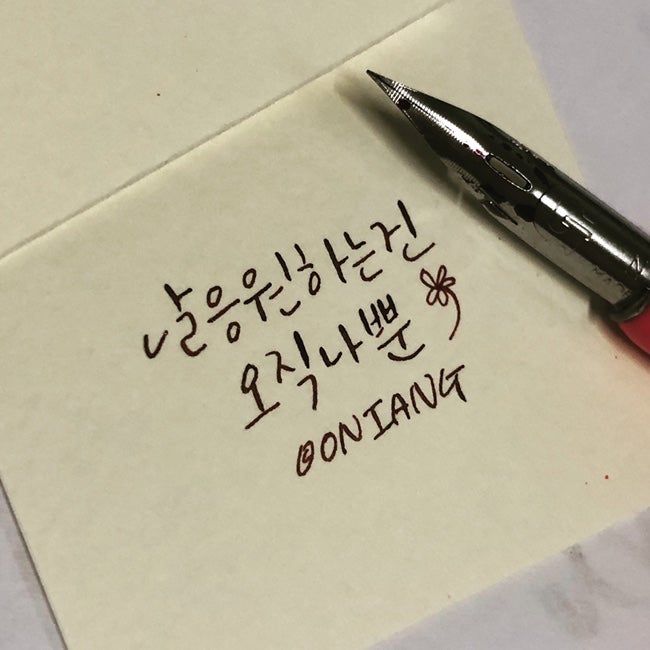 날응원하는건
오직나뿐
@ONIANG